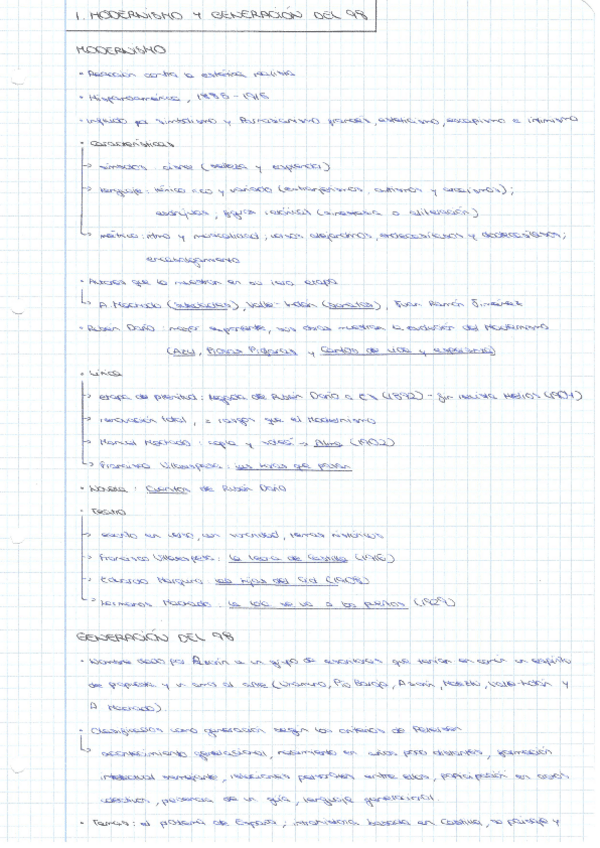 1. MODERNISMO Y GENERACIÓN DEL 98
MODERNISMO
· Reacción contra la estética realista
· Hispanoamérica, 1885-1915
· influido por simbolismo y Parnasianismo francés, esteticismo, escapismo e intimismo
· Características
→ símbolos: cisne (belleza y elegancia)
→ lenguaje: léxico rico y variado (extranjerismos, cultismos y arcaísmos);
adjetivos; figuras retóricas (sinestesia o aliteración)
→ métrica: ritmo y musicalidad, versos alejandrinos, endecasílabos y dodecasílabos;
encabalgamiento
· Autores que lo muestran en su 1era etapa
→ A. Machado (Soledades), Valle-Inclán (Sonatas), Juan Ramón Jiménez
· Rubén Darío: mejor exponente, sus obras muestran la evolución del Modernismo
(Azul, Prosas Profanas y Cantos de vida y esperanza)
· Lírica
→ etapa de plenitud: llegada de Rubén Darío a ES (1892) - fin revista Helios (1904)
→ renovación total, = rasgos que el Modernismo
→ Manuel Machado: copla y soleá → Alma (1902)
→ Francisco Villaespesa: Las horas que pasan
· Novela: Cuentos de Rubén Darío
· Teatro
→ escrito en verso, con sonoridad, temas históricos
→ Francisco Villaespesa: La leona de Castilla (1916)
→ Eduardo Marquina: Las hijas del Cid (1908)
→ Hermanos Machado: La Lola se va a los puertos (1929)
GENERACIÓN DEL 98
· Nombre dado por Azorín a un grupo de escritores que tenían en común un espíritu
de protesta y un amor al arte (Unamuno, Pío Baroja, Azorín, Maeztu, Valle-Inclán y
A Machado).
· Clasificados como generación según los criterios de Petersen
→ acontecimiento generacional, nacimiento en años poco distantes, formación
intelectual semejante, relaciones personales entre ellos, participación en actos
colectivos, presencia de un guía, lenguaje generacional.
· Temas: el problema de España; intrahistoria basada en Castilla, su paisaje y